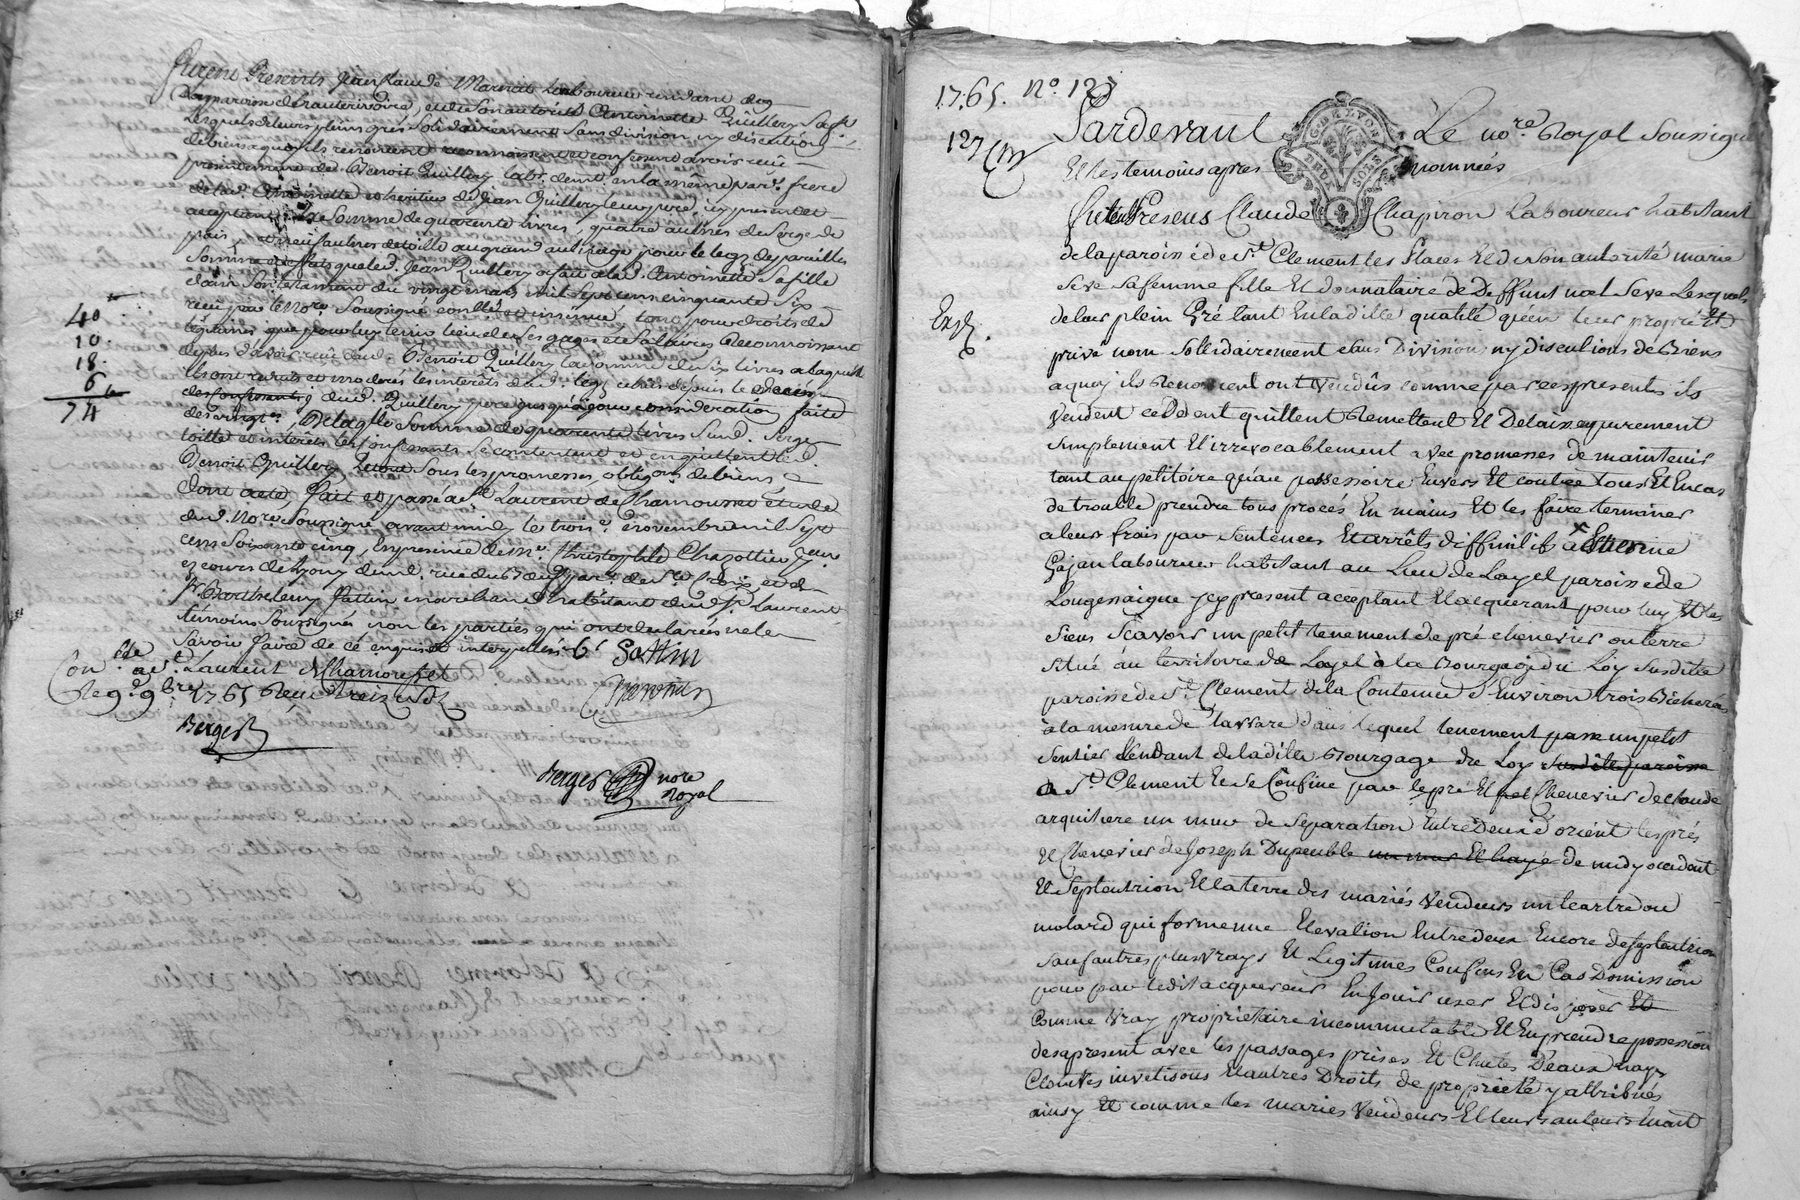 furent Presents Jean Claude Laboureur
paroisse de hauterivoire, et de son autorité Antoinette Quillery Sa fe.
Lesquels de leurs pleins grés Solidairement Sans division, ny discution
de biens a quoy ils renoncent reconnoissent et confessent avoir reçu
presentement de Benoit Quillery labr. demt. en la même parr. frere
de lad. Antoinette et heritier de Jean Quillery leur pere, icy present et
acceptant la Somme de quarente livres, quatre aulnes de Serge de
païs, et neuf aulnes de toille au grand aulnage pour le legs de pareilles
Somme et effets que led. Jean Quillery a fait a lad. Antoinette Sa fille
dans Son testament du vingt mars mil Sept cens cinquante Six
reçu par le Nore. Soussigné controllé et insinué tant pour droits de
légitime que pour luy tenir lieu de Ses gages et Salaires Reconnoissant
de plus d'avoir reçu dud. Benoit Quillery la Somme de Six livres a laquelle
ils ont reduit et moderés les interets dud. legs echus depuis le deceds
dud. Quillery pere jusqu'a jour consideration faite
De laqlle Somme de quarente livres Sud. Serge
toille et interets les confessants Se contentent et en quittent led.
Benoit Quillery Sous les promesses, obligons. de biens &
Dont acte, fait et passé a St. Laurent de Chamousset etude
dud. Nore. Soussigné avant midy le trois. novembre mil Sept
cens Soixante cinq, En presence de Mr. Christophle Chazottier Jeune
et de
Sr. Barthelemy Fattin marchand habitant aud. St. Laurent
témoins Soussignés non les parties qui ont declarées ne le
Savoir faire de ce enquis et interpellés
40
10.
18.
6
74
Con.lle a St. Laurent de Chamousset
Le 9. 9bre 1765 Reçu treize Sols
Berger
Berger nore
royal
1765. No. 127
127
Exp.
Pardevant Le nore. Royal Soussigné
G. DE LYON
DEUX SOLS
Et les temoins apres nommés
furent Presens Claude Chapiron Laboureur habitant
de la paroisse de St. Clement les Places et de son autorité marie
Seve sa femme fille Et donnataire de Deffunt noel Seve Lesquels
de leur plein Gré tant En la dite qualité qu'en leur propre et
privé nom Sollidairement sans Division ny discutions de Biens
a quoy ils Renoncent ont vendûs comme par ces presentes ils
vendent ceddent quittent Remettent Et Delaissent purement
simplement Et irrevocablement avec promesses de maintenir
tant au petitoire qu'au possessoire Envers Et contre tous Et En cas
de trouble prendre tous procés En mains Et les faire terminer
a leur frais par Sentences Et arrêts diffinitifs a Etienne
Gajan laboureur habitant au Lieu de Layel paroisse de
Longessaigne icy present acceptant Et acquerant pour luy Et les
siens Scavoir un petit tenement de pré chenevier ou terre
situé au territoire de Layel à la Bourgage du Loy susdite
paroisse de St. Clement de la Contenue d'Environ trois Bicherées
à la mesure de Tarare dans lequel tenement passe un petit
sentier tendant de la dite Bourgage de Loy susdite paroisse
a St. Clement Et se Confine par le pré Et Chenevier de Claude
arquiliere un mur de Separation Entre Deux d'orient les prés
Et Chenevier de Joseph Dupeuble un mur Et haye de midy occident
Et Septentrion Et la terre des mariés vendeurs un teartre ou
molard qui forme une Elevation Entre deux Encore de Septentrion
sauf autres plus vrays Et Legitimes Confins En Cas D'omission
pour par ledit acquereur En Jouir user Et disposer Et
Comme vray proprietaire incommutable Et En prendre possession
des a present avec les passages prises Et Chutes D'eaux hayes
Et autres Droits de proprieté y attribués
ainsy Et comme les mariés vendeurs Et leurs auteurs En ont